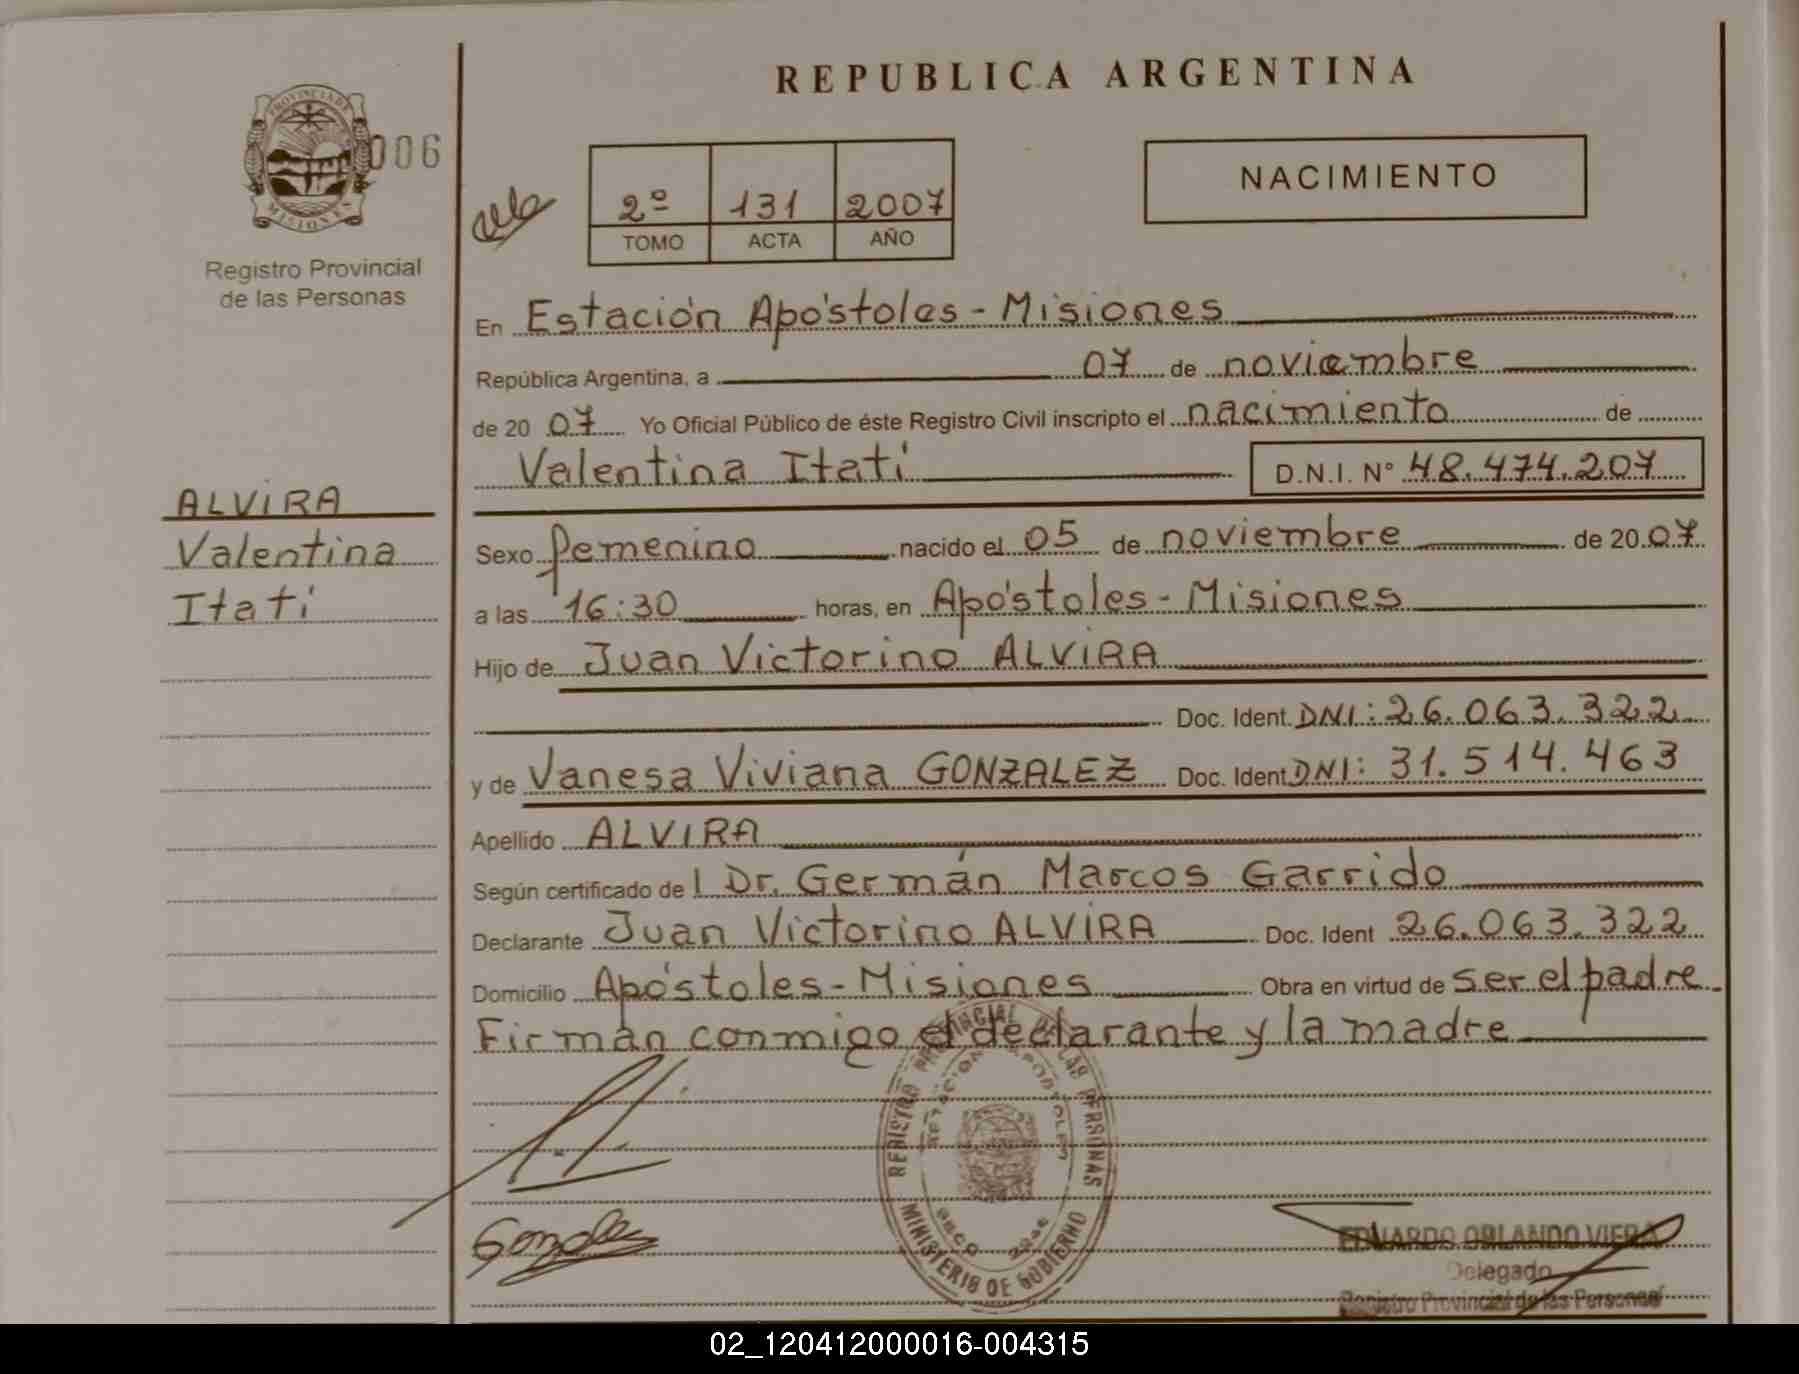 REPUBLICA ARGENTINA
PROVINCIA DE MISIONES
006
Registro Provincial
de las Personas
2º 131 2007
TOMO ACTA AÑO
NACIMIENTO
En Estación Apóstoles - Misiones
República Argentina, a 07 de noviembre
de 20 07 Yo Oficial Público de éste Registro Civil inscripto el nacimiento de
Valentina Itatí D.N.I. Nº 48.474.207
ALVIRA
Valentina
Itatí
Sexo femenino nacido el 05 de noviembre de 20 07
a las 16:30 horas, en Apóstoles - Misiones
Hijo de Juan Victorino ALVIRA
Doc. Ident. DNI: 26.063.322
y de Vanesa Viviana GONZALEZ Doc. Ident DNI: 31.514.463
Apellido ALVIRA
Según certificado de l Dr. Germán Marcos Garrido
Declarante Juan Victorino ALVIRA Doc. Ident 26.063.322
Domicilio Apóstoles - Misiones Obra en virtud de ser el padre.
Firmán conmigo el declarante y la madre
REGISTRO PROVINCIAL DE LAS PERSONAS
ESTACION APOSTOLES
MINISTERIO DE GOBIERNO
EDUARDO ORLANDO VIERA
Delegado
Registro Provincial de las Personas
02_120412000016-004315